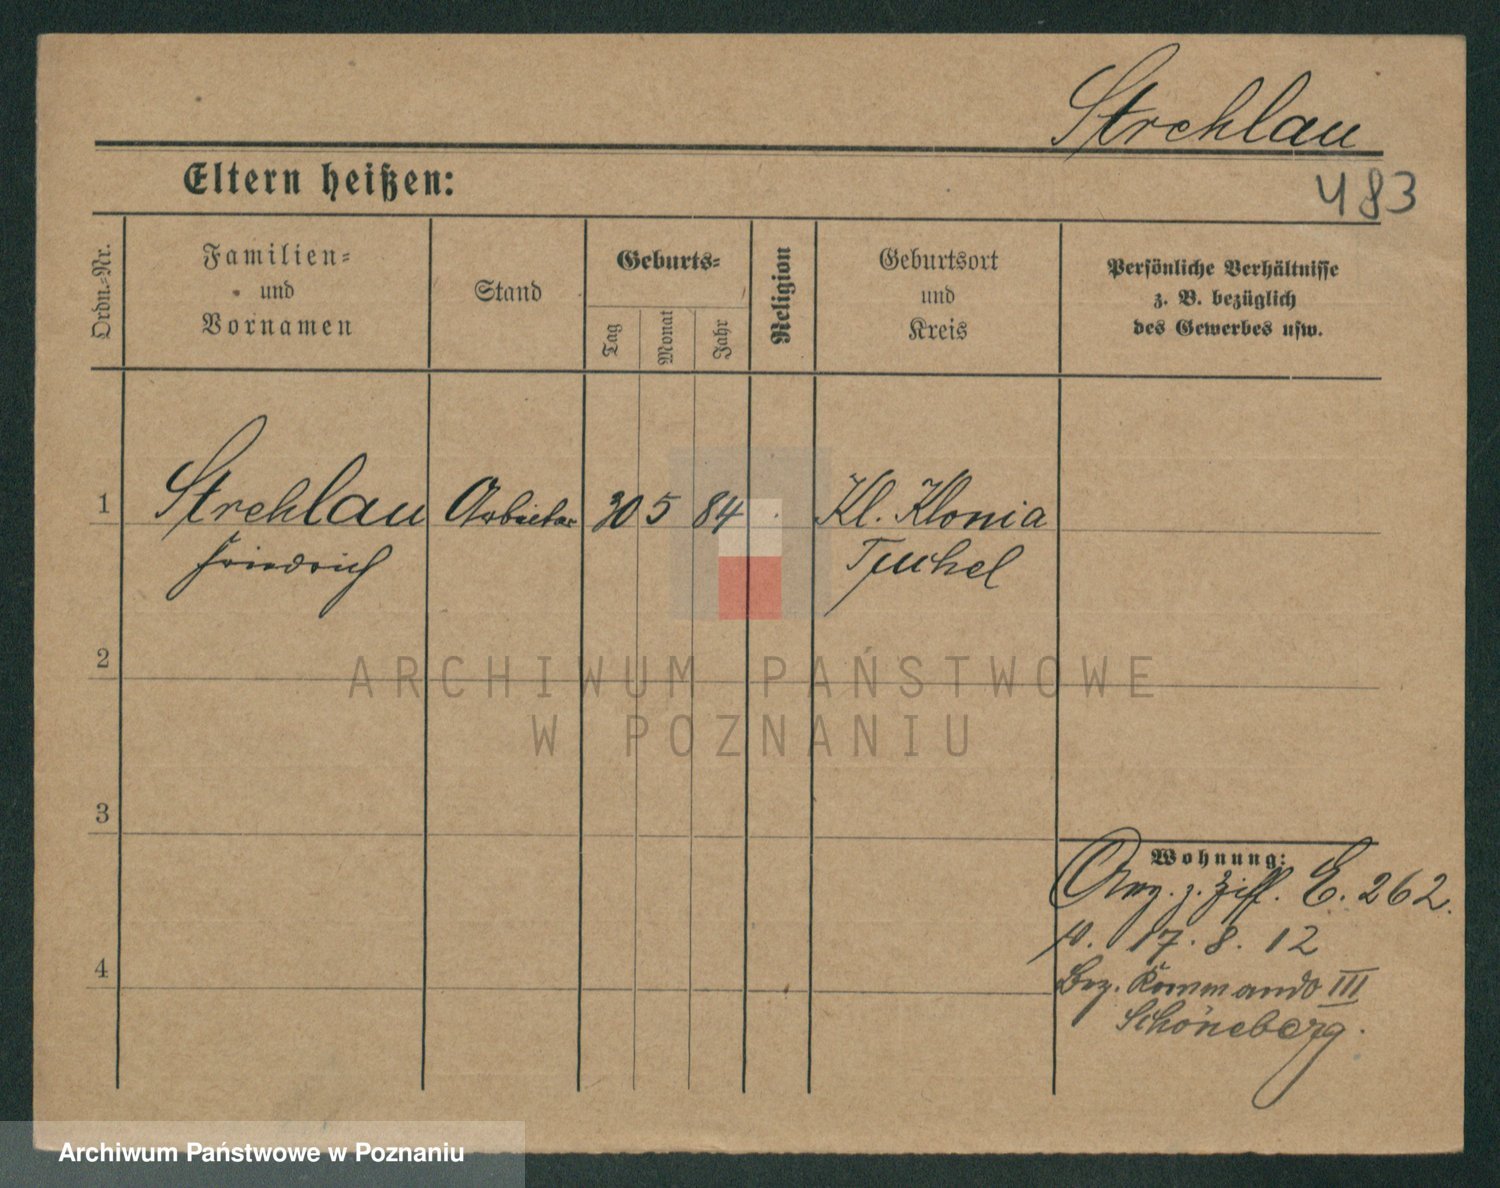 Strehlau
Eltern heißen:
483
Ordn.-Nr.
Familien-
und
Vornamen
Stand
Geburts-
Tag
Monat
Jahr
Religion
Geburtsort
und
Kreis
Persönliche Verhältnisse
z. B. bezüglich
des Gewerbes usw.
1
Strehlau Arbeiter 30 5 84 Kl. Klonia
Friedrich Tuchel
2
ARCHIWUM PAŃSTWOWE
W POZNANIU
3
Wohnung:
z. Ziff. E. 262.
17. 8. 12
4
Bez. Kommando III
Schöneberg.
Archiwum Państwowe w Poznaniu